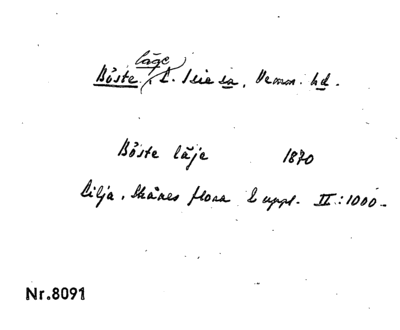 Böste läge, L. Isie sn, Vemm. hd.
Böste läje 1870
Lilja, Skånes flora 2 uppl. II:1000.
Nr.8091